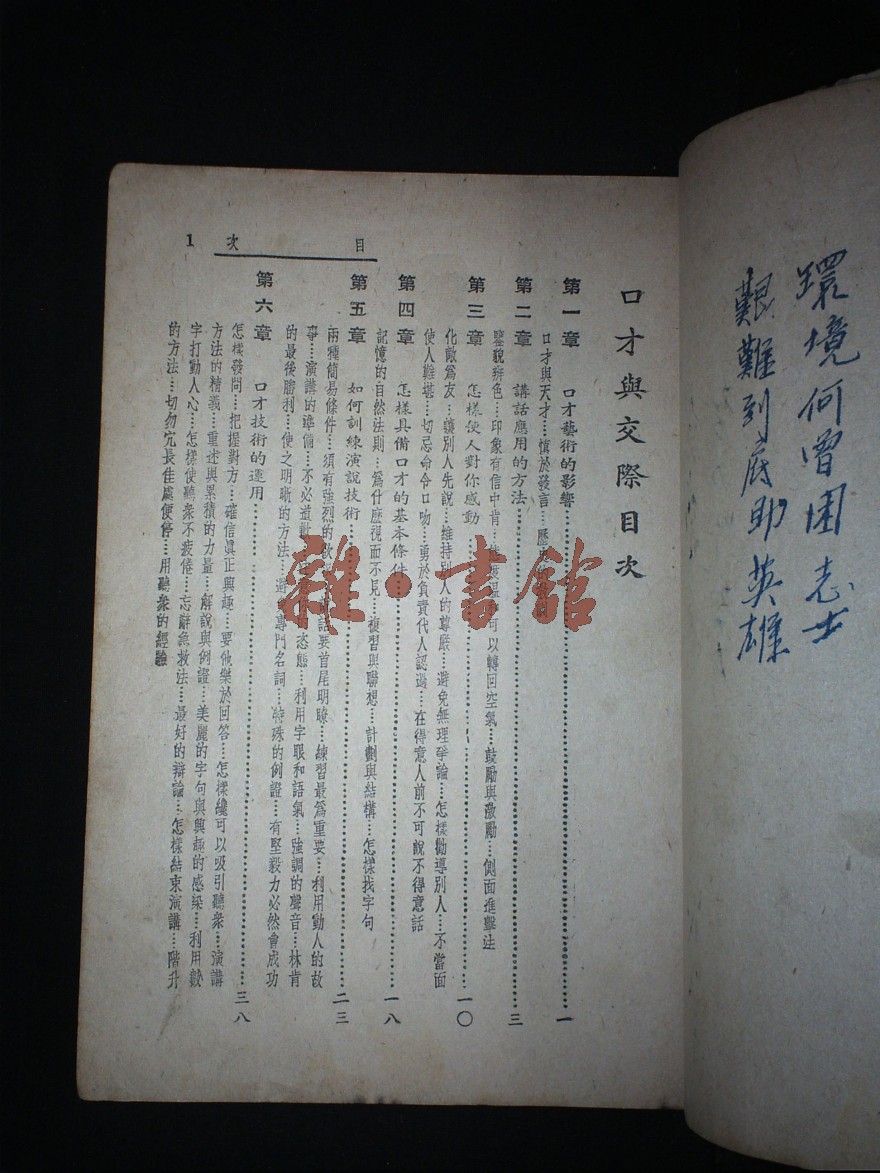 環境何曾困志士
艱難到底助英雄
口才與交際目次
第一章 口才藝術的影響……一
口才與天才…慎於發言…歷史
第二章 講話應用的方法……三
鑒貌辨色…印象有信中肯…態度溫和可以轉回空氣…鼓勵與激勵…側面進擊法
第三章 怎樣使人對你感動……一〇
化敵爲友…讓別人先說…維持別人的尊嚴…避免無理爭論…怎樣勸導別人…不當面
使人難堪…切忌命令口吻…勇於負責代人認過…在得意人前不可說不得意話
第四章 怎樣具備口才的基本條件……一八
記憶的自然法則…爲什麽視而不見…複習與聯想…計劃與結構…怎樣找字句
第五章 如何訓練演說技術……二三
兩種簡易條件…須有強烈的欲 話要首尾明瞭…練習最爲重要…利用動人的故
事…演講的準備…不必道歉 的态態…利用字眼和語氣…強調的聲音…林肯
的最後勝利…使之明晰的方法…避 專門名詞…特殊的例證…有堅毅力必然會成功
第六章 口才技術的運用……三八
怎樣發問…把握對方…確信眞正興趣…要他樂於回答…怎樣纔可以吸引聽衆…演講
方法的精義…重述與累積的力量…解說與例證…美麗的字句與興趣的感染…利用數
字打動人心…怎樣使聽衆不疲倦…忘辭急救法…最好的辯論…怎樣結束演講…階升
的方法…切勿冗長佳處便停…用聽衆的經驗
目次 1
雜·書館